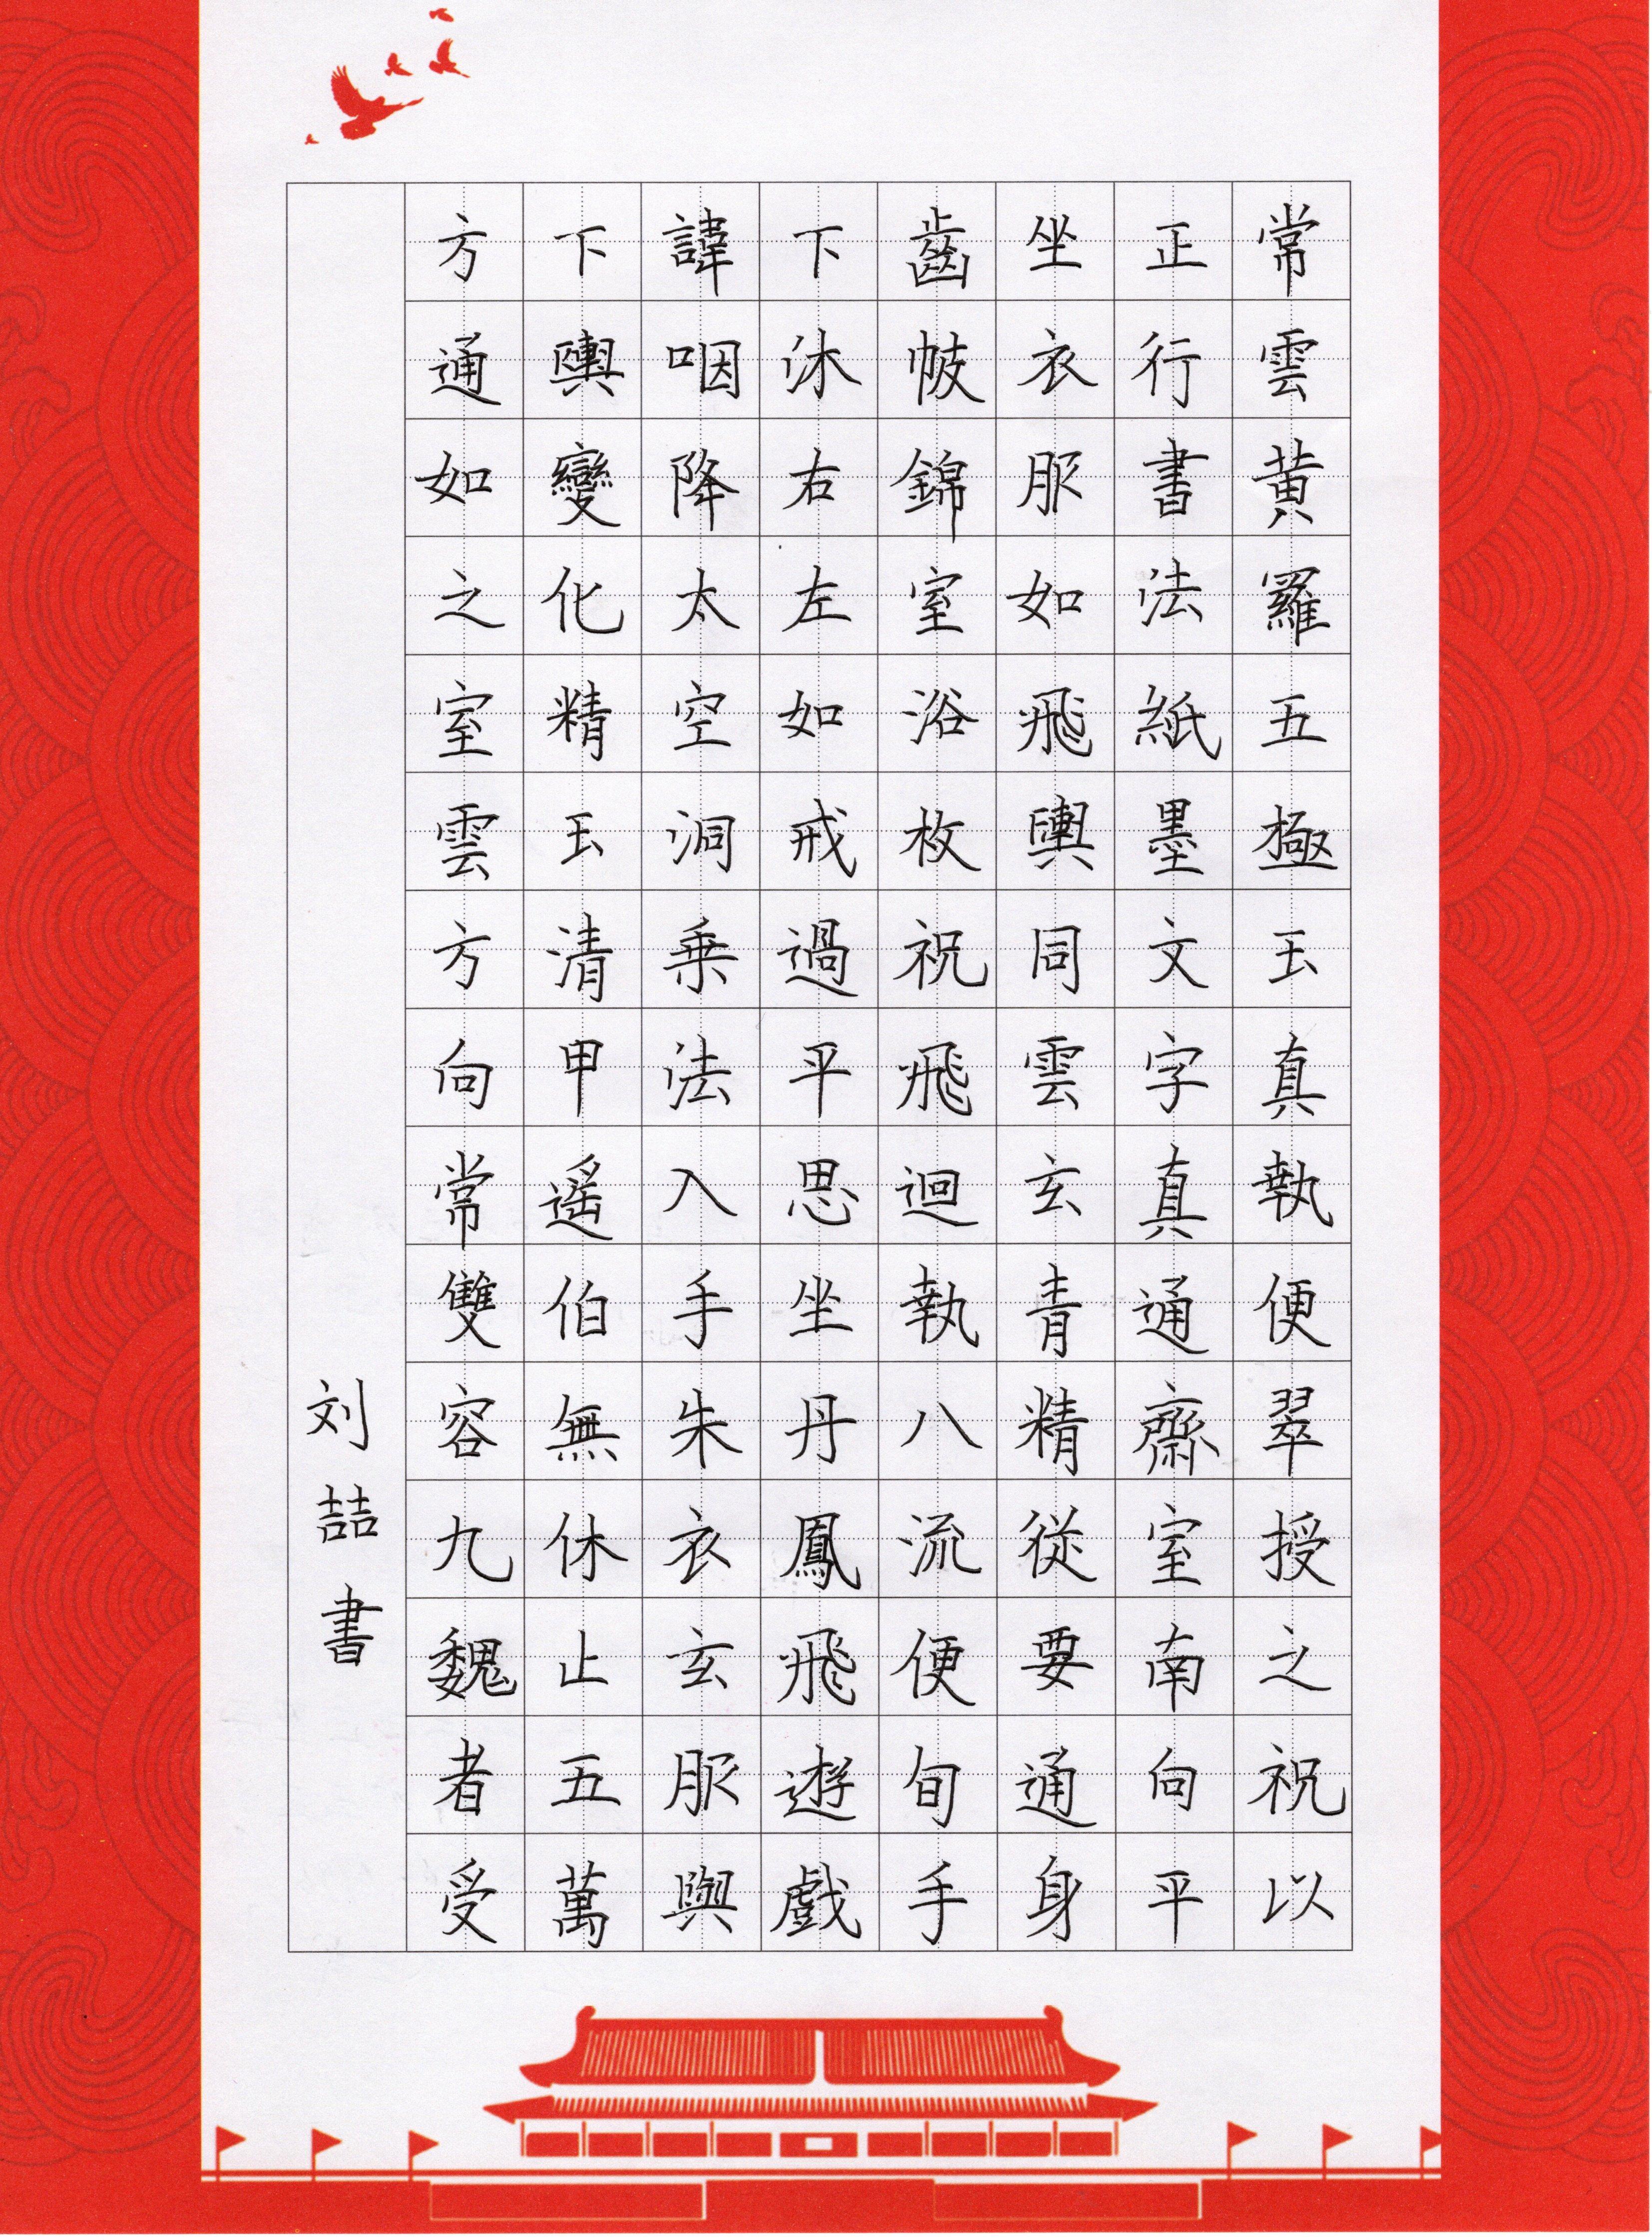 常雲黄羅五極玉真執便翠授之祝以
正行書法紙墨文字真通齋室南向平
坐衣服如飛輿同雲玄青精從要通身
齒帔錦室浴枚祝飛迴執八流便旬手
下沐右左如戒過平思坐丹鳳飛遊戲
諱咽降太空洞乗法入手朱衣玄服與
下輿變化精玉清甲遥伯無休止五萬
方通如之室雲方向常雙容九魏者受
刘喆書